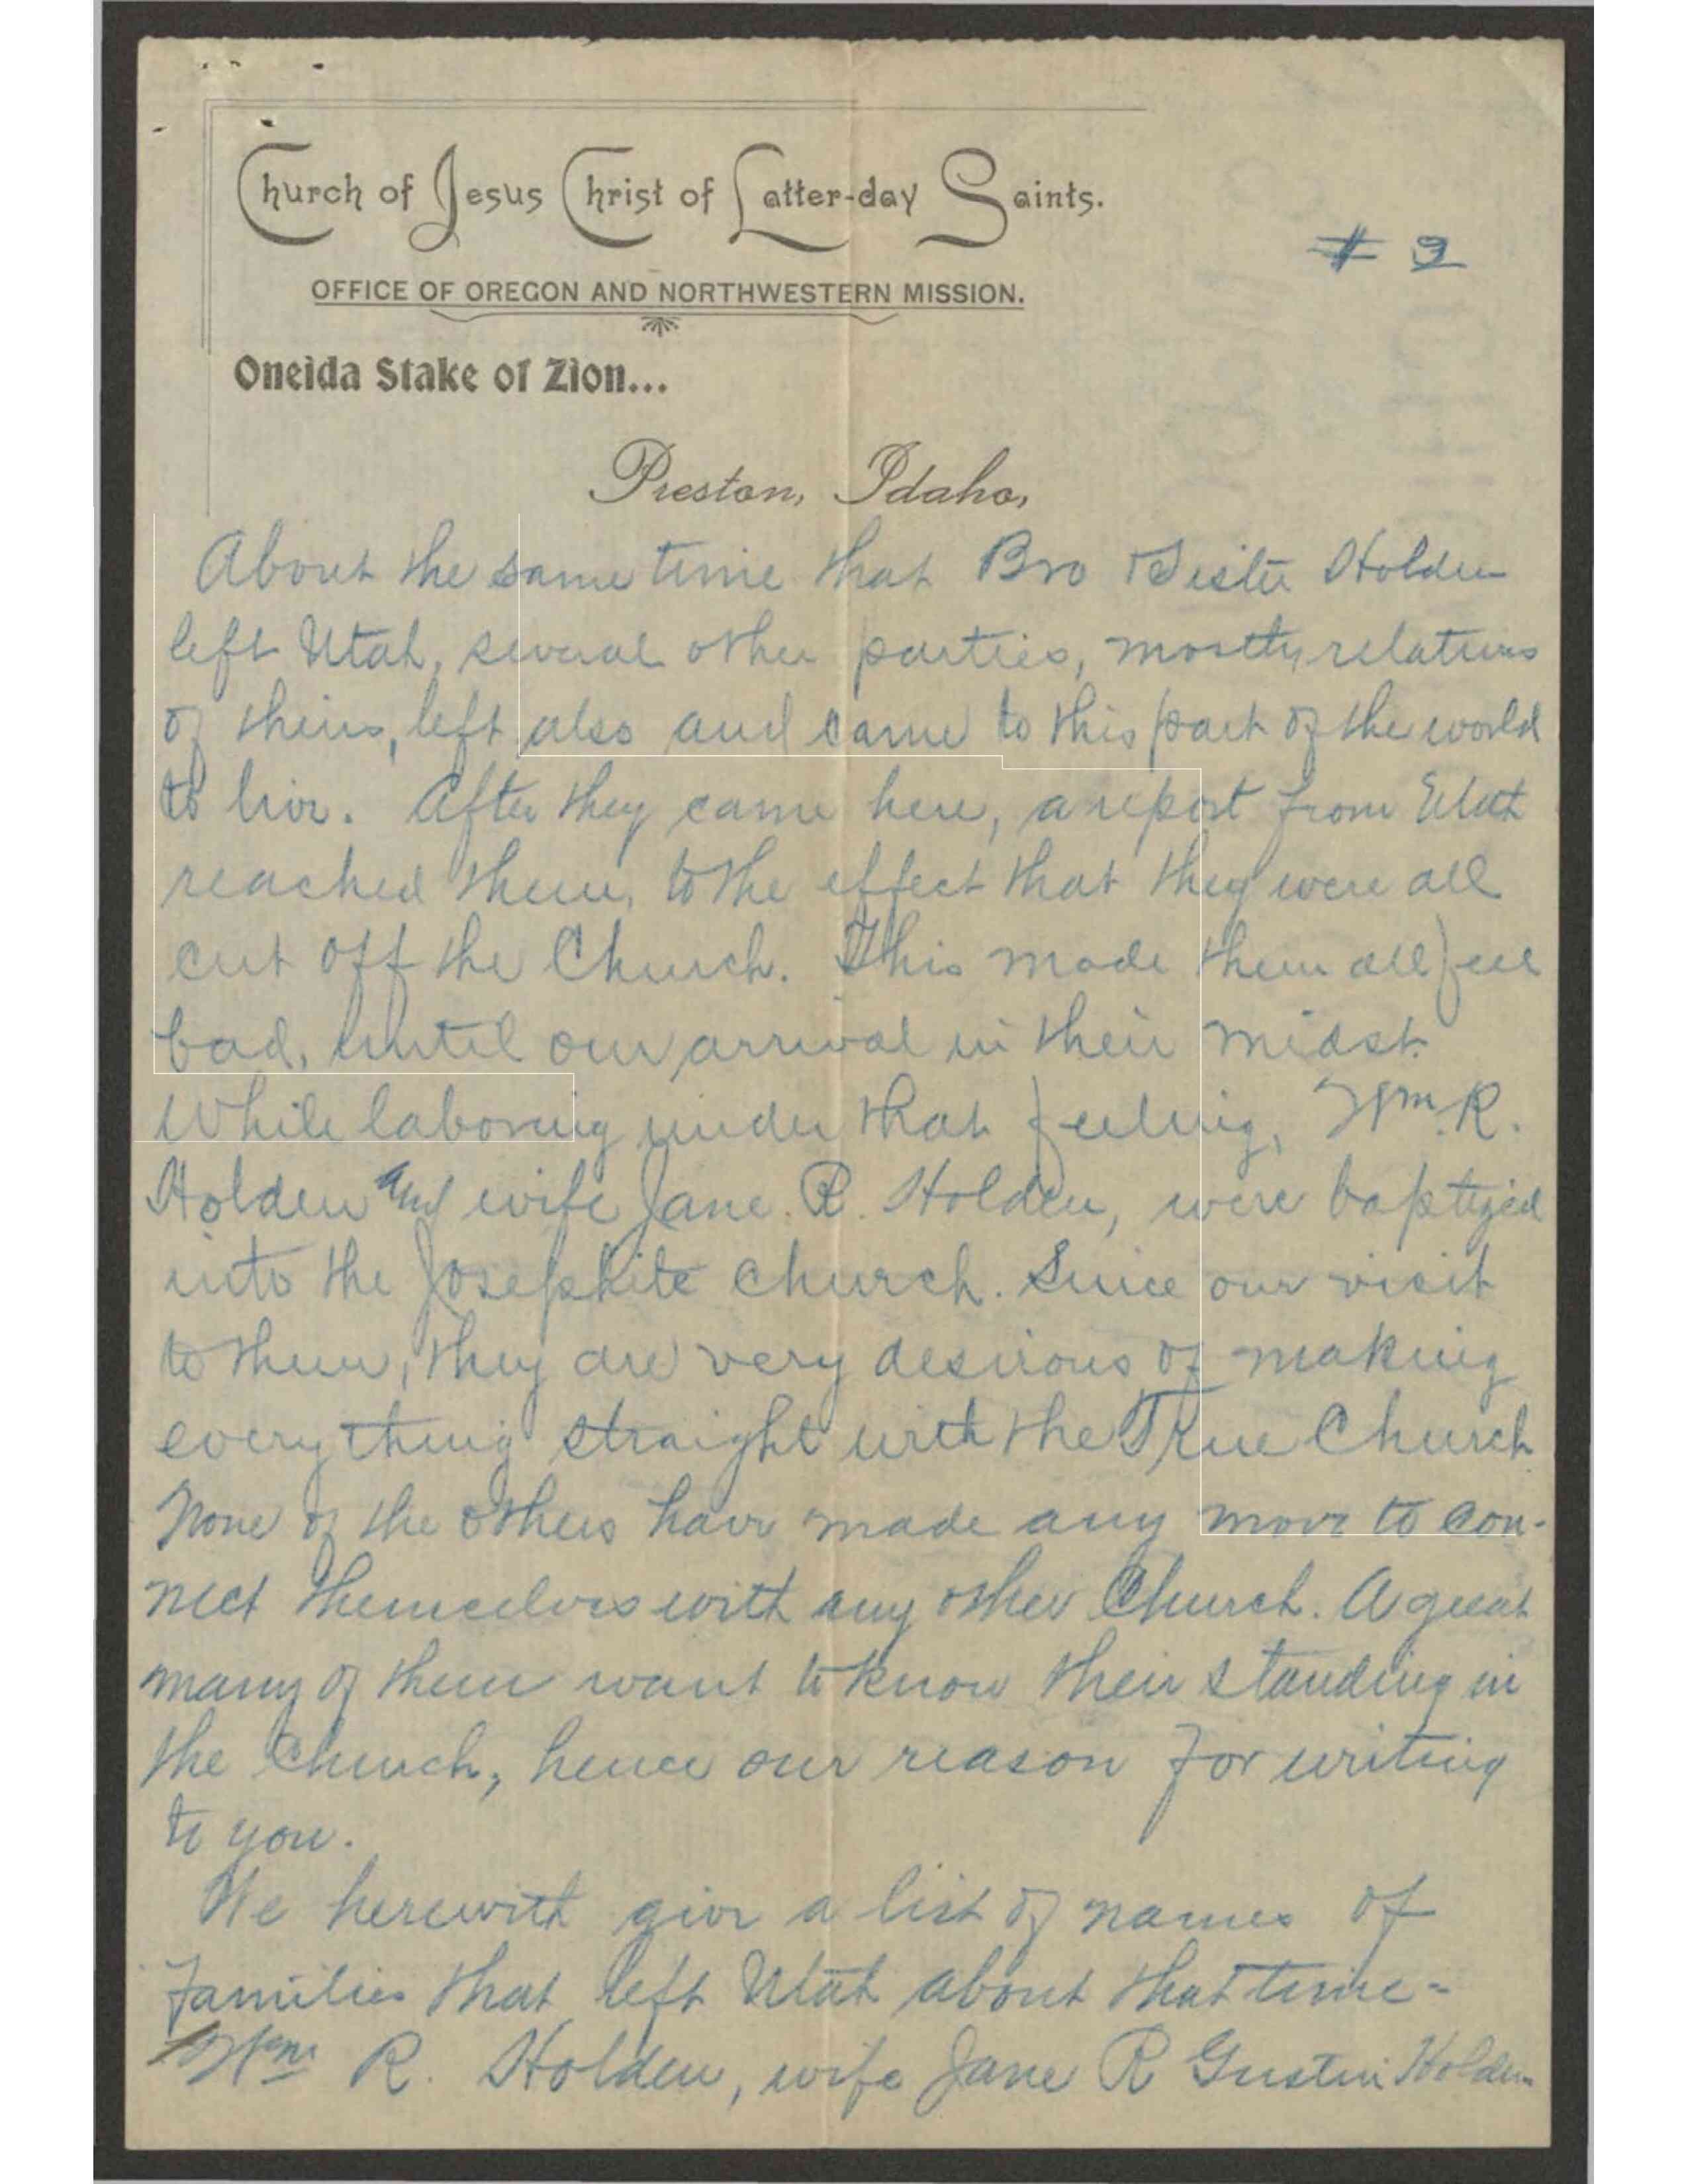 Church of Jesus Christ of Latter-day Saints.
# 3
OFFICE OF OREGON AND NORTHWESTERN MISSION.
Oneida Stake of Zion...
Preston, Idaho,
About the same time that Bro & Sister Holden
left Utah, several other parties, mostly relatives
of theirs, left also and came to this part of the world
to live. After they came here, a report from Utah
reached them, to the effect that they were all
cut off the Church. This made them all feel
bad, until our arrival in their midst.
While laboring under that feeling, Wm. R.
Holden and wife Jane. R. Holden, were baptized
into the Josephite church. Since our visit
to them, they are very desirous of making
everything straight with the True Church
None of the others have made any move to con-
nect themselves with any other Church. A great
many of them want to know their standing in
the Church, hence our reason for writing
to you.
We herewith give a list of names of
Families that left Utah about that time -
Wm R. Holden, wife Jane R Gustin Holden